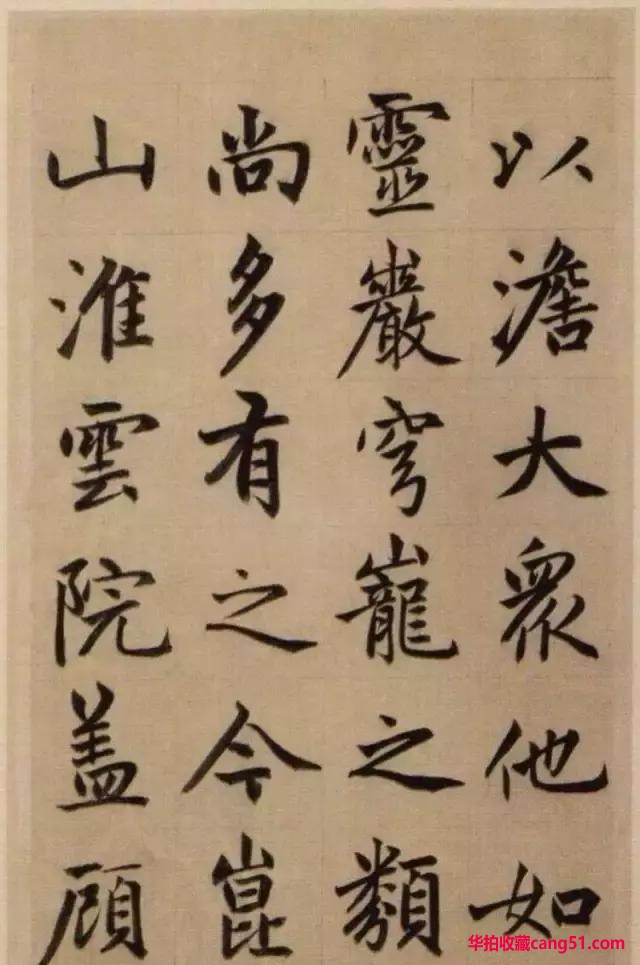 以澹大衆他如
靈巖穹巃之類
尚多有之今崑
山淮雲院盖顧
华拍收藏cang51.com